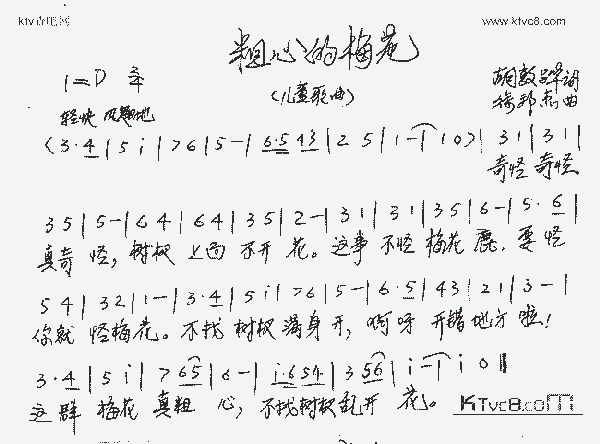 ktv吉吧网
www.ktvc8.com
粗心的梅花
1=D 2/4
〈儿童歌曲〉
词
徐邦杰曲
轻快 风趣地
〈3·4|5 i|7 6|5 -|6·5 43|2 5|1 -|1 0〉|3 1|3 1|
奇怪 奇怪
3 5|5 -|6 4|6 4|3 5|2 -|3 1|3 1|3 5|6 -|5·6|
真奇 怪，树杈 上面 不开 花。这事 不怪 梅花 鹿，要怪
5 4|3 2|1 -|3·4|5 i|7 6|5 -|6·5|4 3|2 1|3 -|
你就 怪梅花。不找 树杈 满身 开，啊呀 开错 地方 啦！
3·4|5 i|7 65|6 -|i·654|3 56|i -|i 0‖
这群 梅花 真粗 心，不找树杈乱开 花。
KTvc8.com